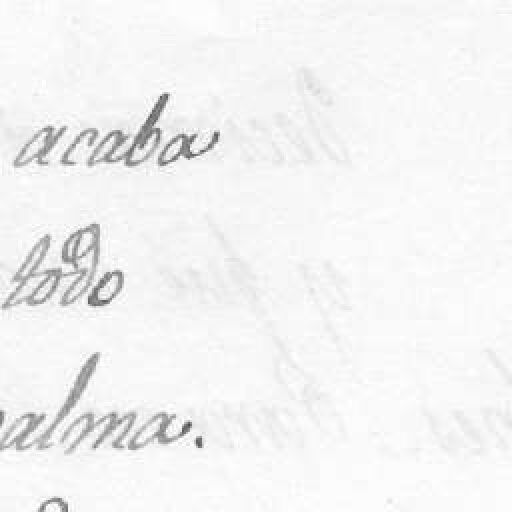 acaba
todo
alma.